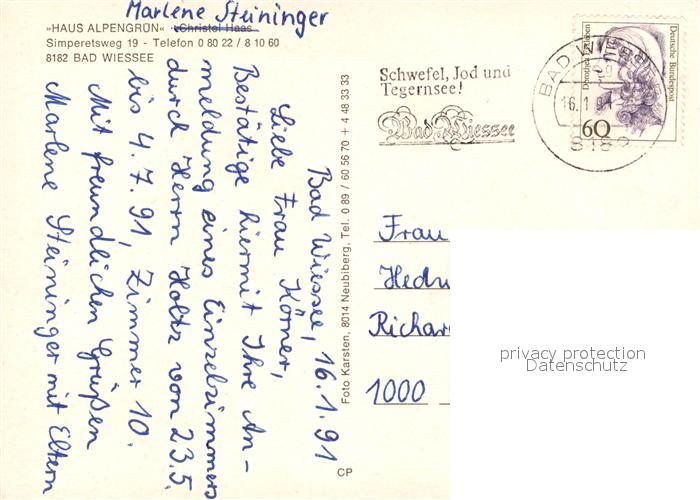 Marlene Steininger
»HAUS ALPENGRÜN« · Christel Haas
Simperetsweg 19 - Telefon 0 80 22 / 8 10 60
8182 BAD WIESSEE
Bad Wiessee, 16.1.91
Liebe Frau Körner,
Bestätige hiermit Ihre An-
meldung eines Einzelzimmers
durch Herrn Holtz von 23.5.
bis 4.7.91, Zimmer 10.
Mit freundlichen Grüßen
Marlene Steininger mit Eltern
Foto Karsten, 8014 Neubiberg, Tel. 0 89 / 60 56 70 + 4 48 33 33
CP
Schwefel, Jod und
Tegernsee!
Bad Wiessee
BAD WIESSEE
16.1.91
818
Deutsche Bundespost
Dorothea Erxleben
60
Frau
Hedw
Richar
1000
privacy protection
Datenschutz